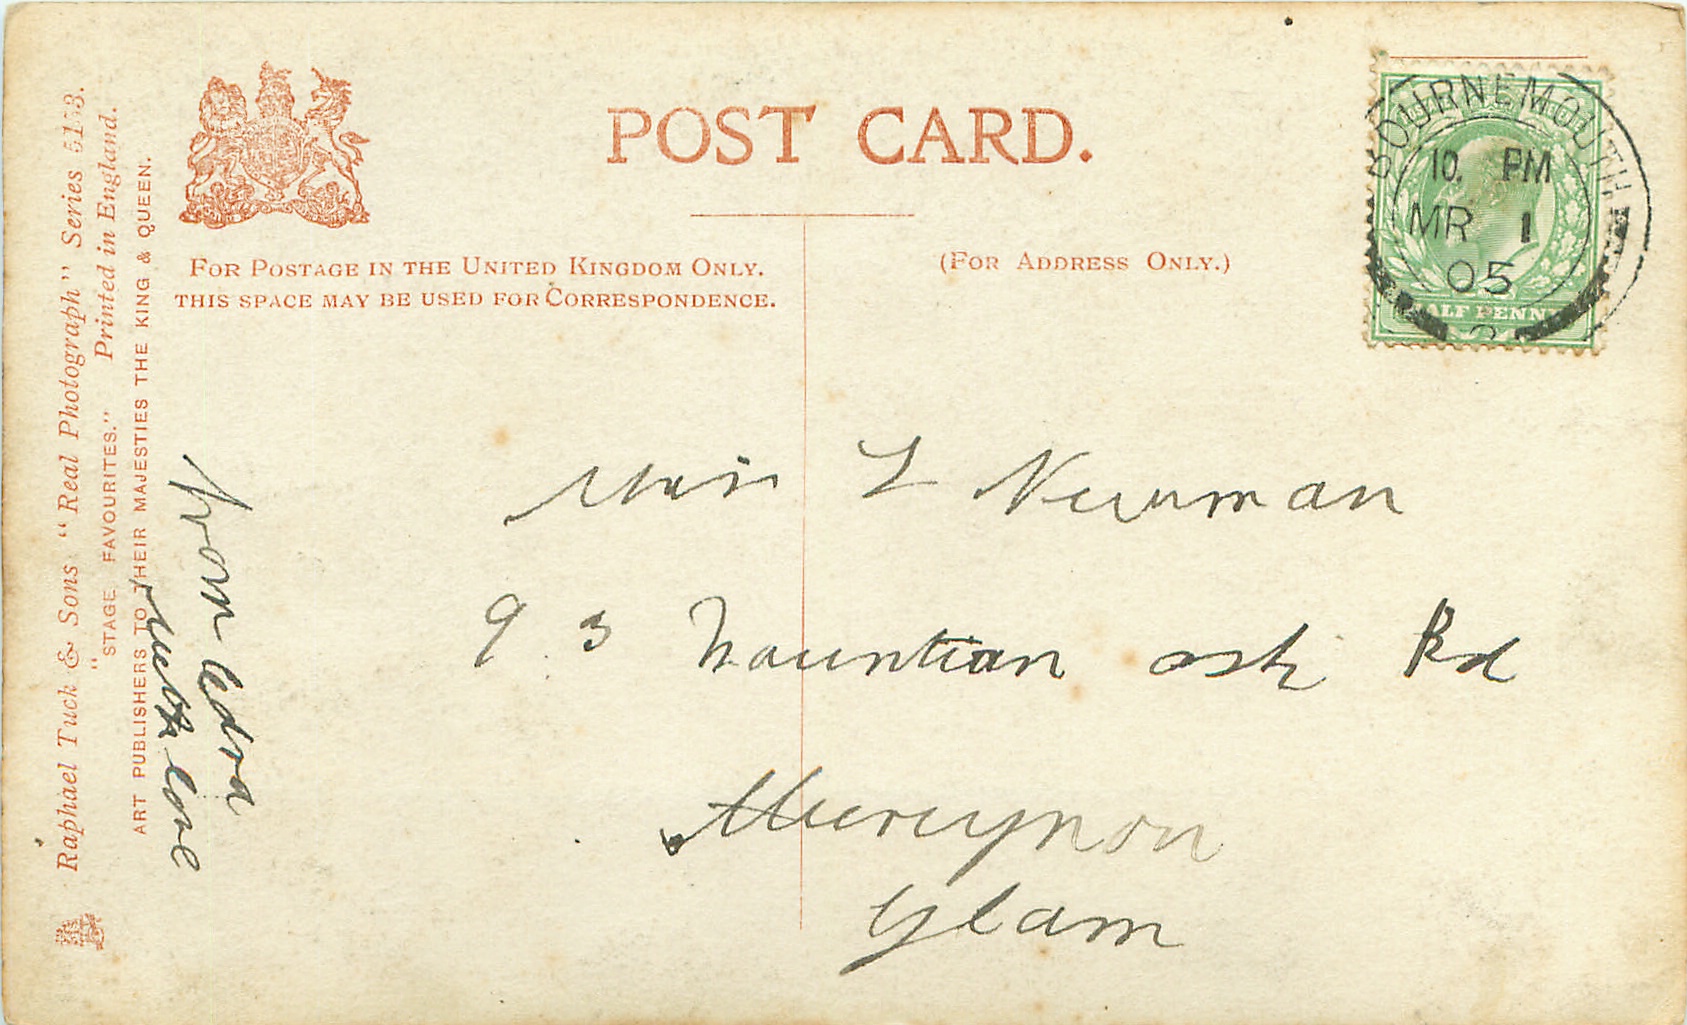 POST CARD.
FOR POSTAGE IN THE UNITED KINGDOM ONLY.
THIS SPACE MAY BE USED FOR CORRESPONDENCE.
(FOR ADDRESS ONLY.)
BOURNEMOUTH
10. PM
MR 1
05
HALF PENNY
Miss L Newman
93 Mountian ash Rd
Glam
From Edna
with love
Raphael Tuck & Sons "Real Photograph" Series 5133.
"STAGE FAVOURITES." Printed in England.
ART PUBLISHERS TO THEIR MAJESTIES THE KING & QUEEN.